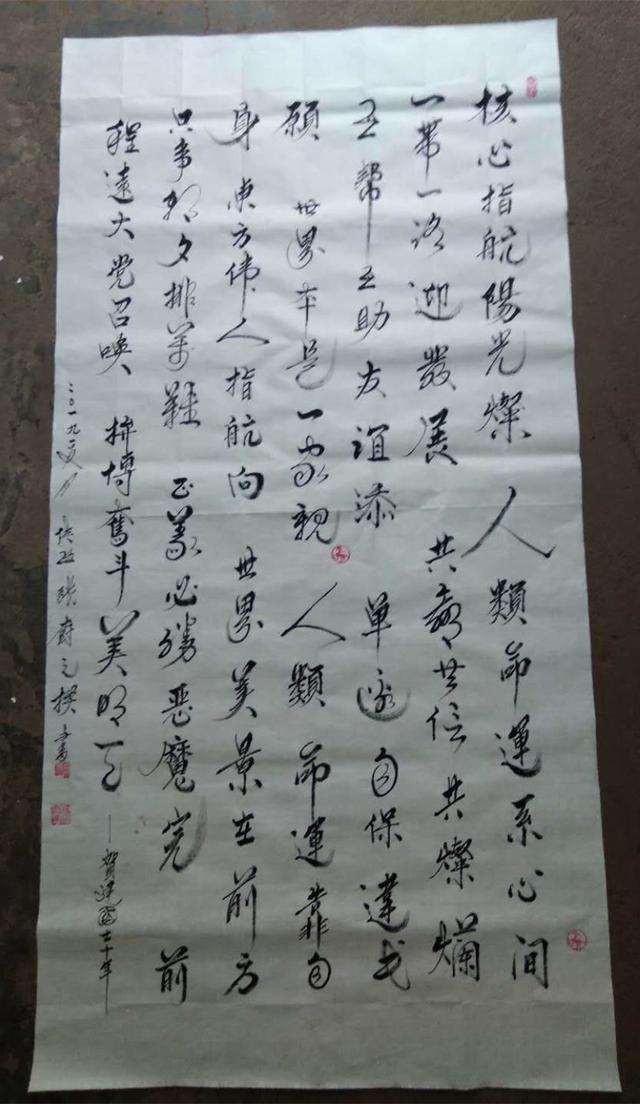 核心指航陽光燦 人類命運系心间
一帶一路迎發展 共共信共燦爛
互幫互助友誼添 單邊自保違民
願 世界本是一家親 人類命運靠自
身 東方偉人指航向 世界美景在前方
只争朝夕排萬難 正義必勝惡魔完 前
程遠大党召喚 拚搏奮斗美明天 —賀建國七十年
二〇一九夏月 張之撰書